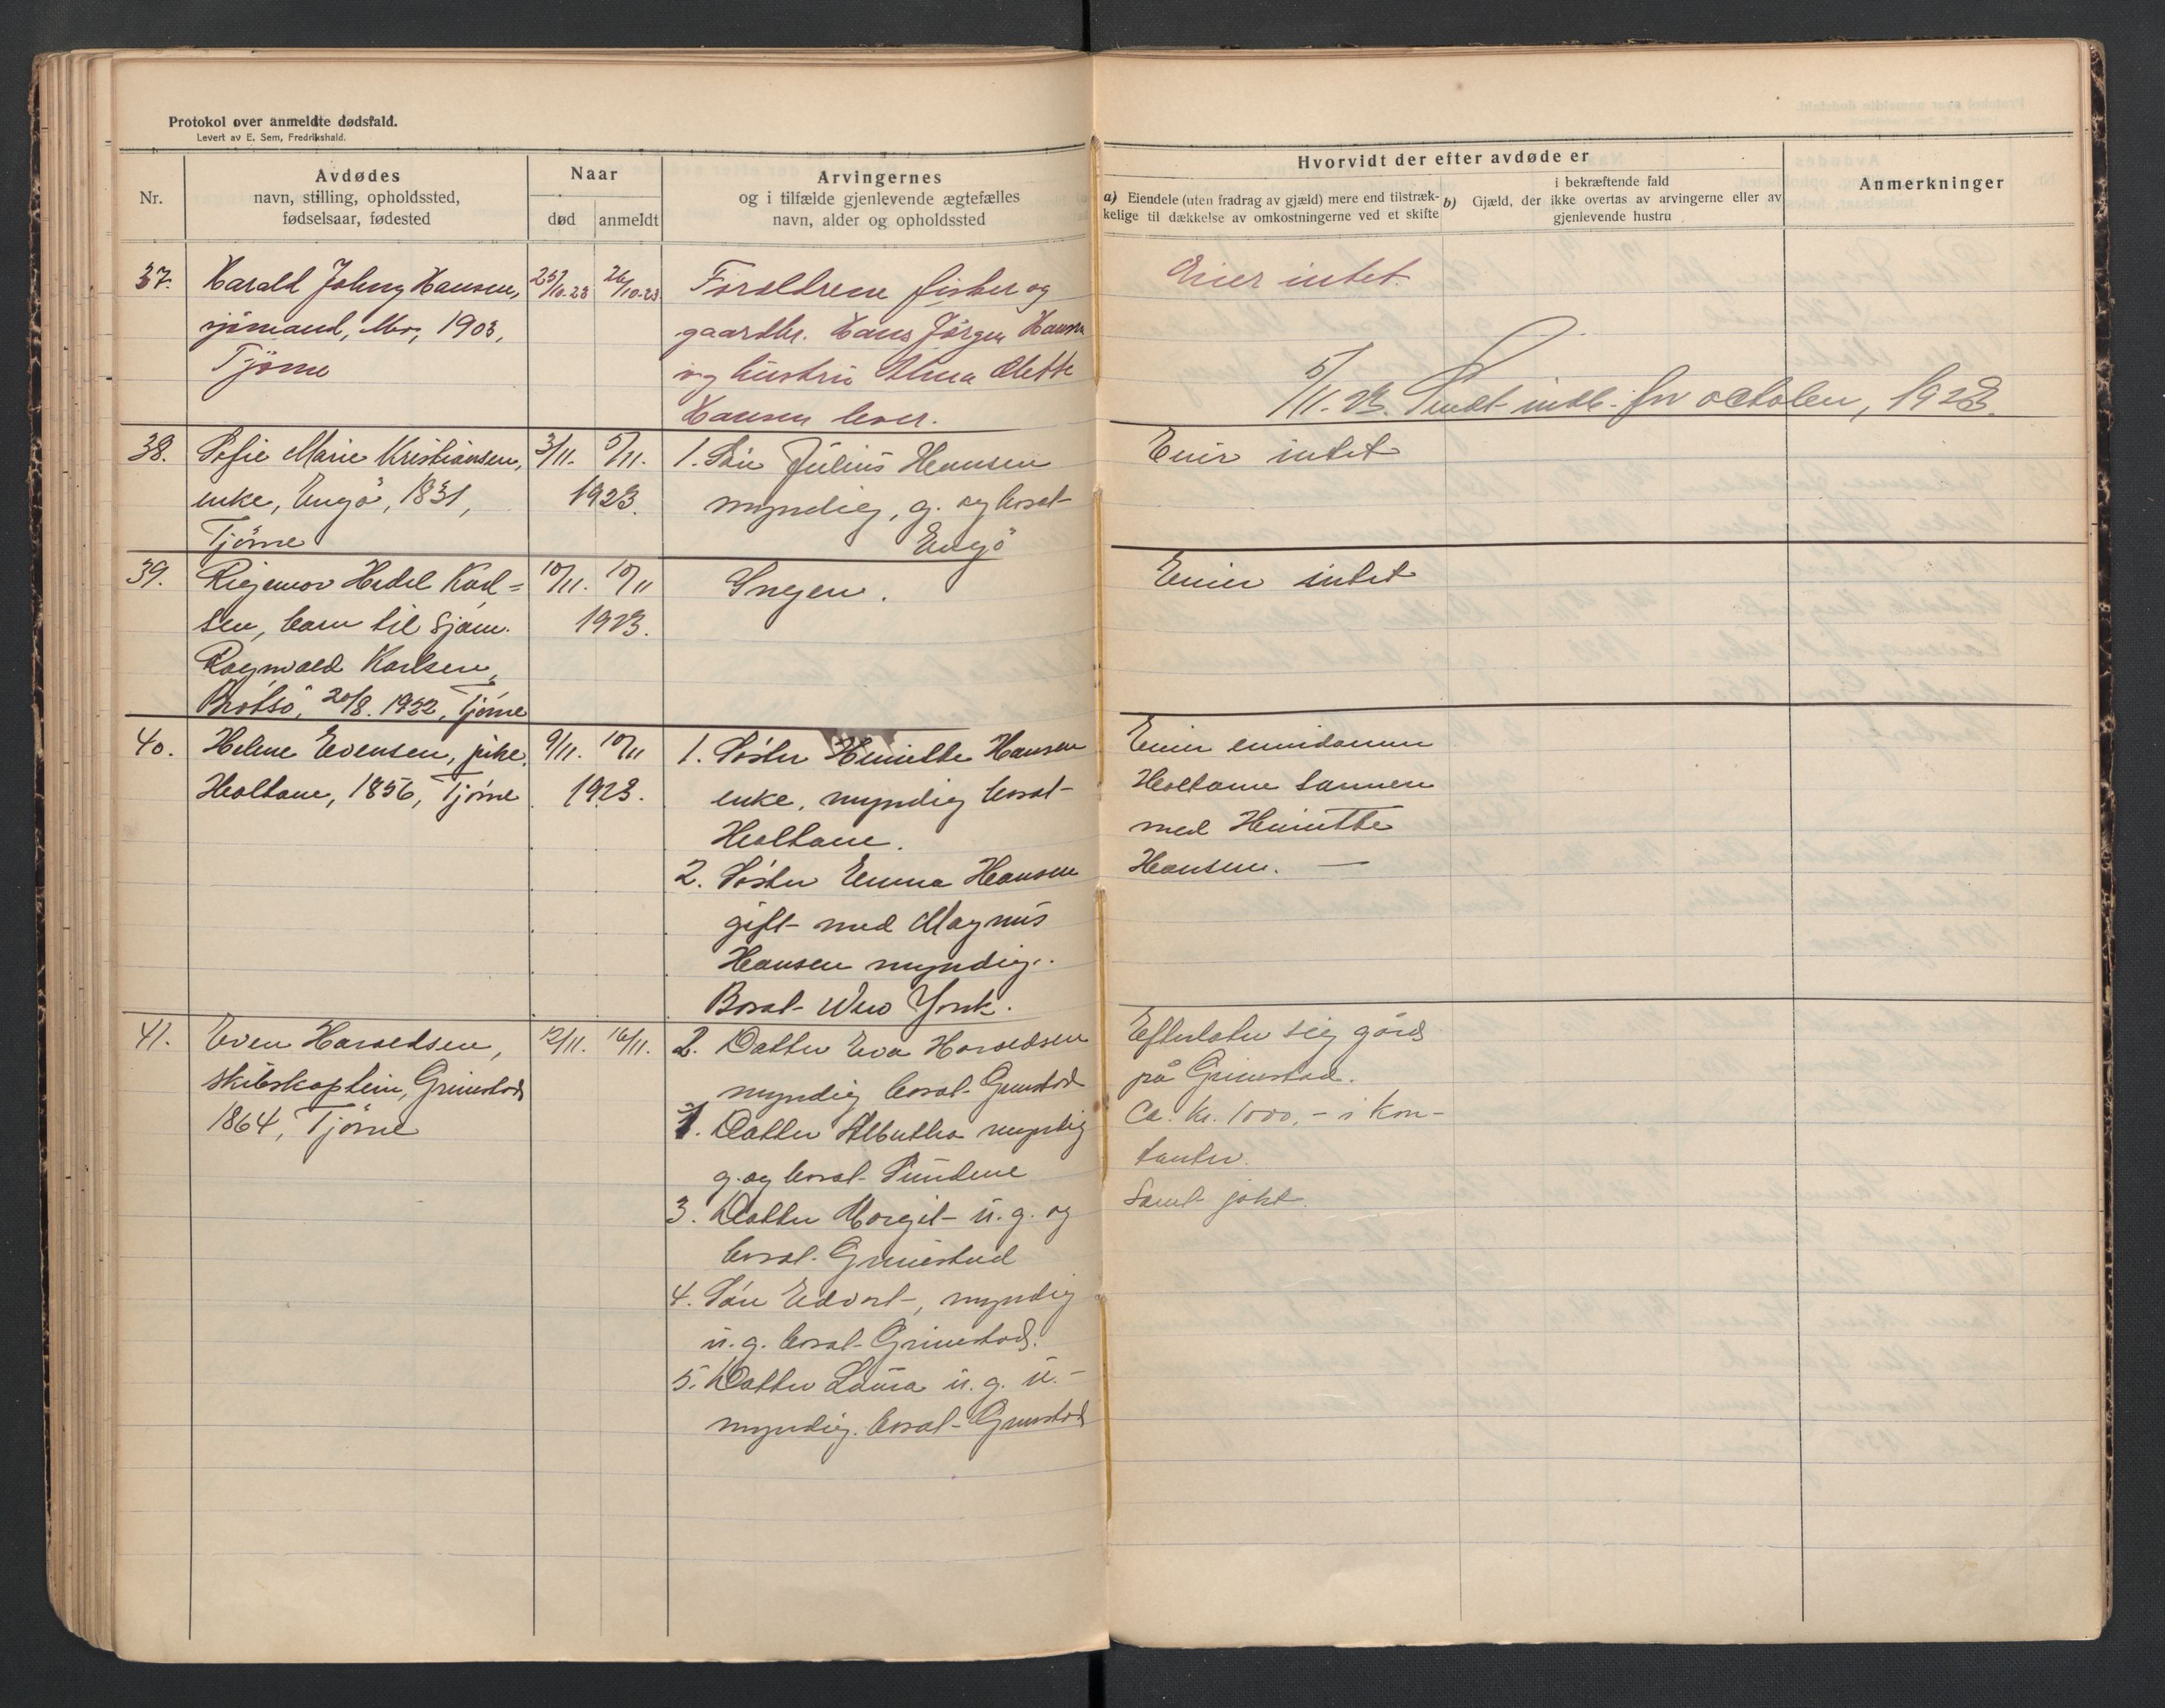 Protokol over anmeldte dødsfald.
Levert av E. Sem, Fredrikshald.
Nr.
Avdødes
navn, stilling, opholdssted,
fødselsaar, fødested
Naar
død
anmeldt
Arvingernes
og i tilfælde gjenlevende ægtefælles
navn, alder og opholdssted
Hvorvidt der efter avdøde er
a) Eiendele (uten fradrag av gjæld) mere end tilstræk-
kelige til dækkelse av omkostningerne ved et skifte
i bekræftende fald
b) Gjæld, der ikke overtas av arvingerne eller av
gjenlevende hustru
Anmerkninger
37.
Harald Johny Hansen,
sjømand, Mo, 1903,
Tjøme
25/10.23
26/10.23
Forældrene fisker og
gaardbr. Hans Jørgen Hansen
og hustru Alma Mette
Hansen lever.
Eier intet.
5/11.23. Sendt indb. for october, 1923.
38.
Sofie Marie Kristiansen,
enke, Engö, 1831,
Tjöme
3/11. 5/11.
1923.
1. Sön Julius Hansen
myndig, g. og bosat
Engö
Eier intet
39.
Rigmor Hedel Karl=
sen, barn til sjöm.
Ragnvald Karlsen,
Brötsö, 20/8. 1922, Tjöme
10/11. 10/11
1923.
Ingen.
Eier intet
40.
Helene Evensen, pike,
Holtane, 1856, Tjöme
9/11. 10/11
1923.
1. Söster Henriette Hansen
enke, myndig bosat
Holtane.
2. Söster Emma Hansen
gift med Magnus
Hansen myndig.
Bosat New York.
Eier eiendommen
Holtane sammen
med Henriette
Hansen. —
41.
Even Haraldsen,
skibskaptein, Grimestad
1864, Tjöme
12/11. 16/11.
2. Datter Eva Haraldsen
myndig bosat Grimestad
1. Datter Albertha myndig
g. og bosat Sundene
3. Datter Margit u. g. og
bosat Grimestad
4. Sön Edvart, myndig
u. g. bosat Grimestad.
5. Datter Laura u. g. u.-
myndig. bosat Grimestad
Efterlater sig gård
på Grimestad.
Ca. Kr. 1000,- i kon-
tanter.
Samt jakt.